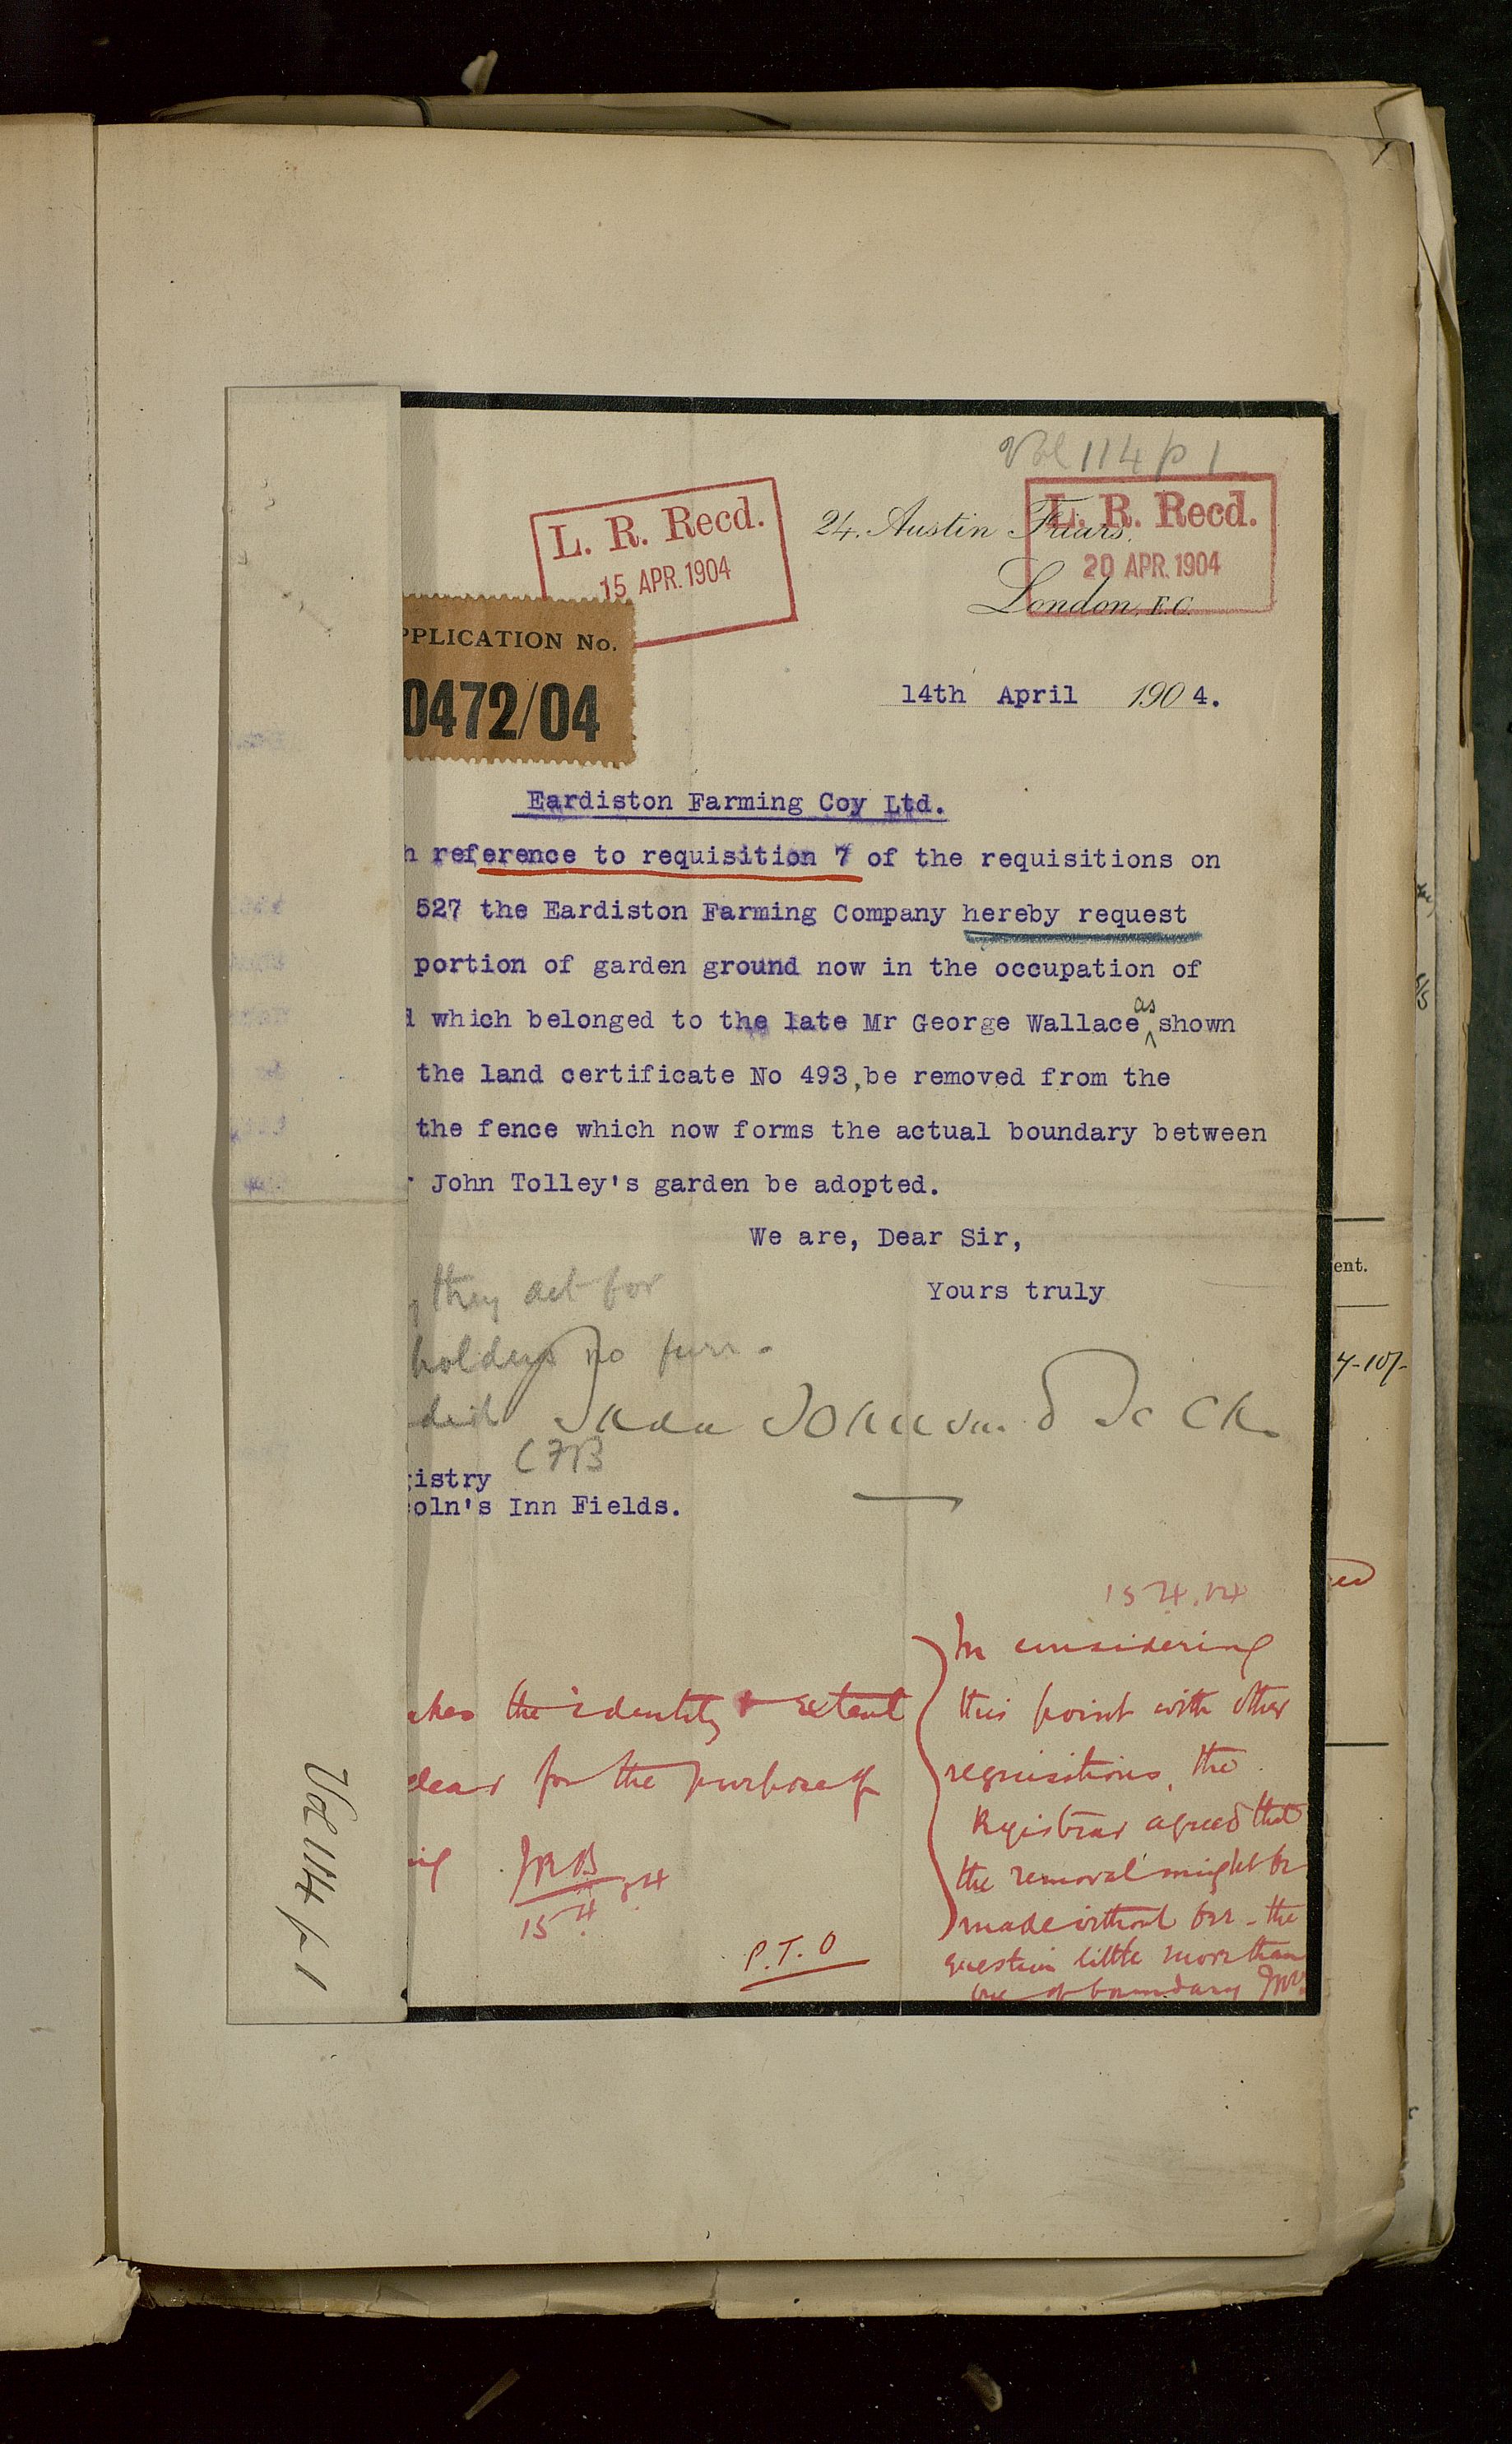 Vol 114 p 1
L. R. Recd.
15 APR. 1904
24, Austin Friars,
L. R. Recd.
20 APR. 1904
London, E.C.
PPLICATION No.
0472/04
14th April 1904.
Eardiston Farming Coy Ltd.
h reference to requisition 7 of the requisitions on
527 the Eardiston Farming Company hereby request
portion of garden ground now in the occupation of
d which belonged to the late Mr George Wallace as shown
the land certificate No 493, be removed from the
the fence which now forms the actual boundary between
r John Tolley's garden be adopted.
We are, Dear Sir,
Yours truly
they act for
holders no furr.
CFB
gistry
coln's Inn Fields.
15.4.04
akes the identity & extent
clear for the purpose of
JRB
15.4.04
P.T.O
In considering
this point with other
requisitions, the
Registrar agreed that
the removal might be
made without - the
question little more than
one of boundary
Vol 114 p 1
ent.